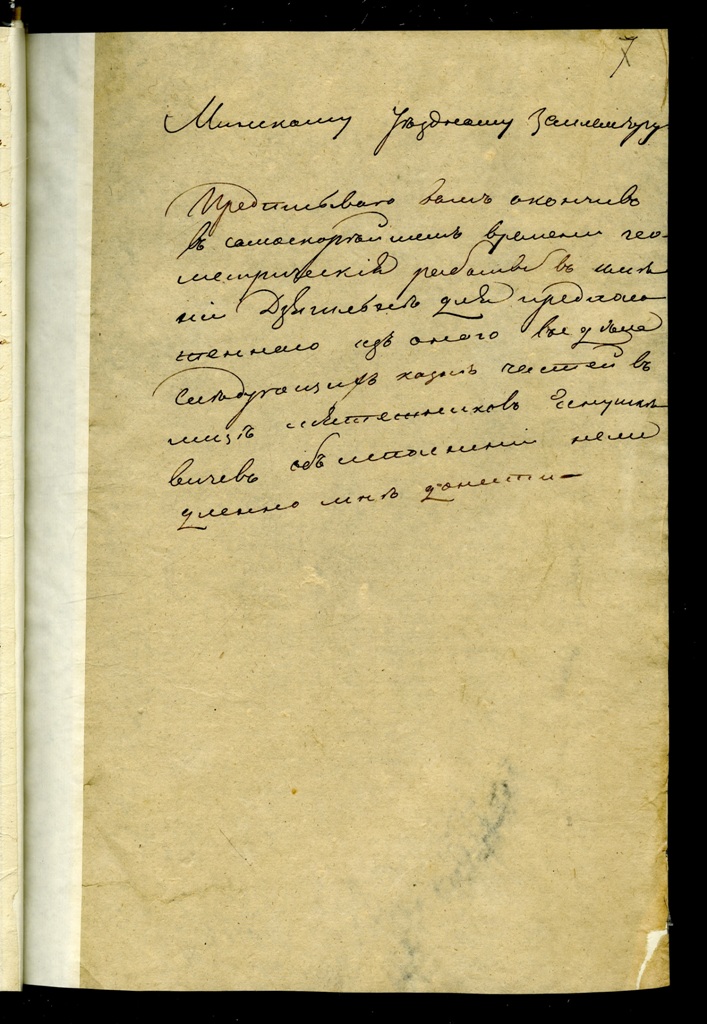 7
Минскому Уѣздному Землемѣру
Предписываю вамъ окончивъ
въ самоскорѣйшемъ времени гео-
метрическія работы въ имѣ
ніи для предположе
теннаго изъ онаго выдѣла
слѣдующихъ казнѣ частей въ
вичевъ объ исполненіи неме
дленно мнѣ донести